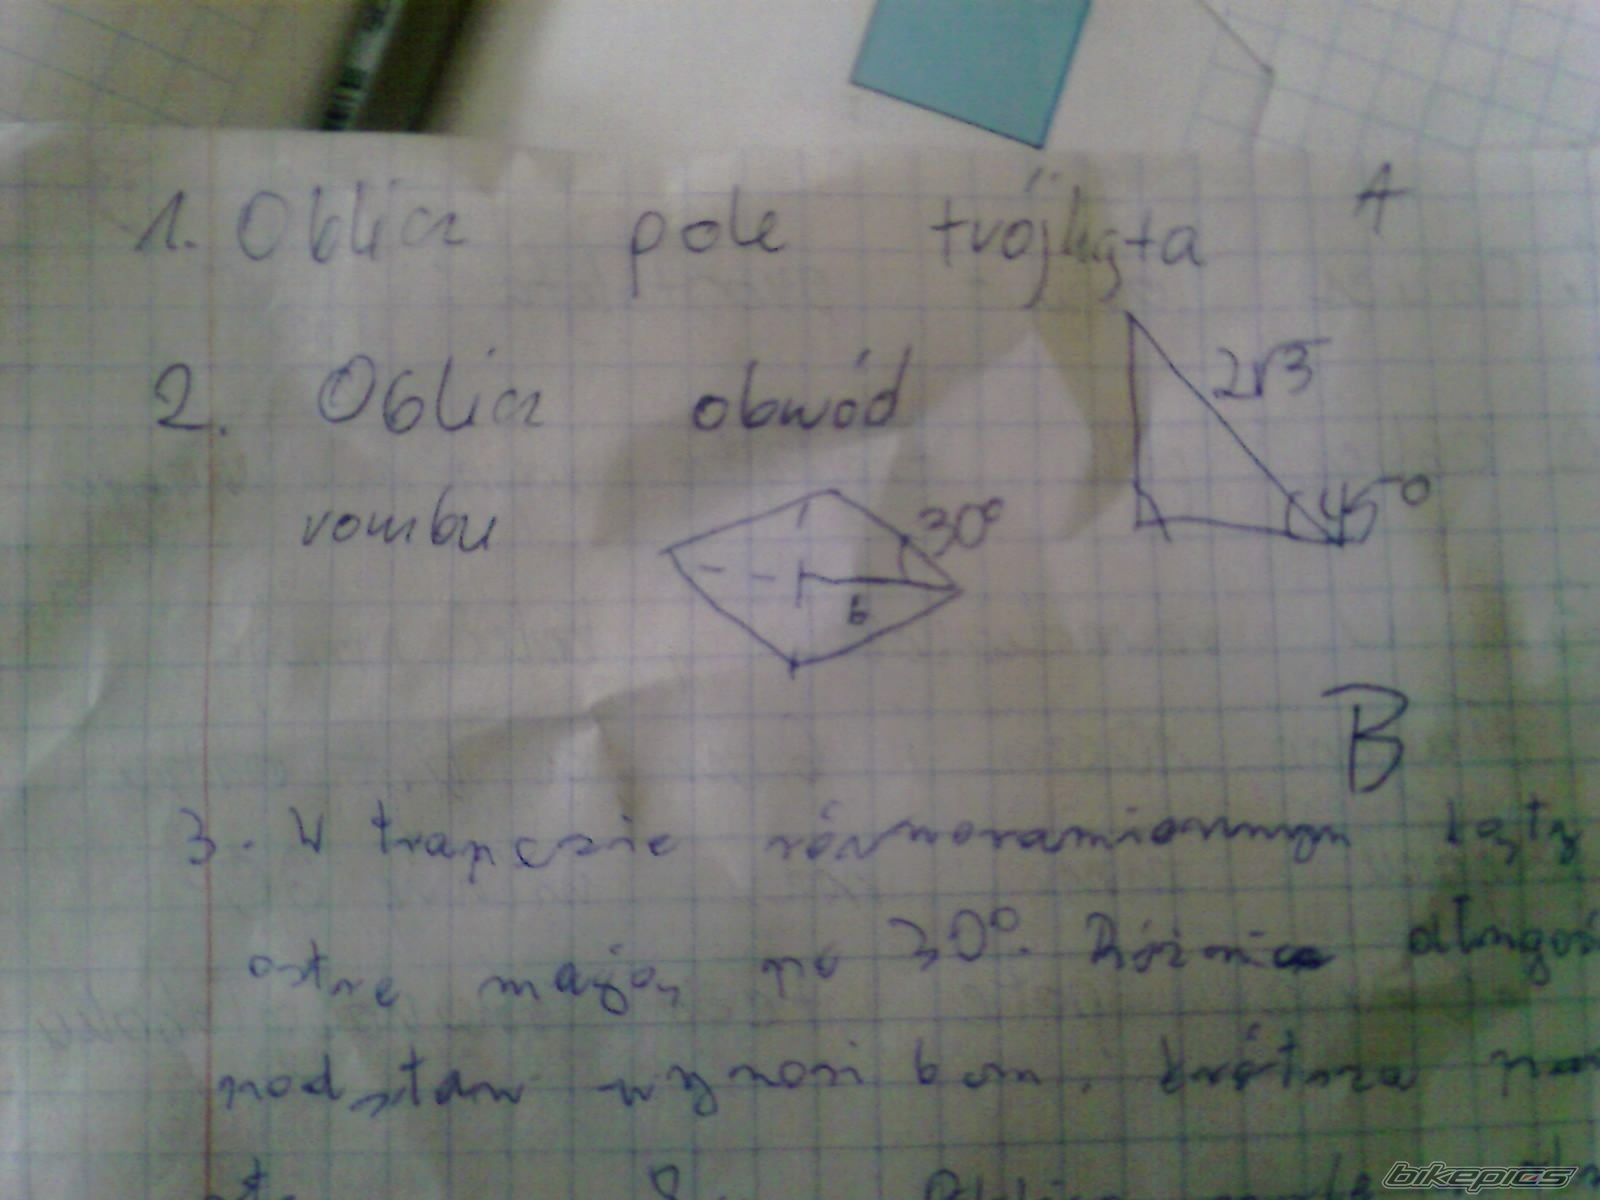 1. Oblicz pole trójkąta A
2√3
45°
2. Oblicz obwód
rombu
30°
6
B
3. W trapezie równoramiennym kąty
ostre mają po 30°. Różnica długoś
podstaw wynosi 6 cm, krótsza
8
bikepics